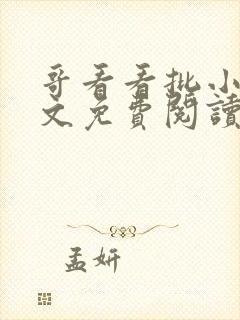 哥看看批小
文免費閱讀
孟妍